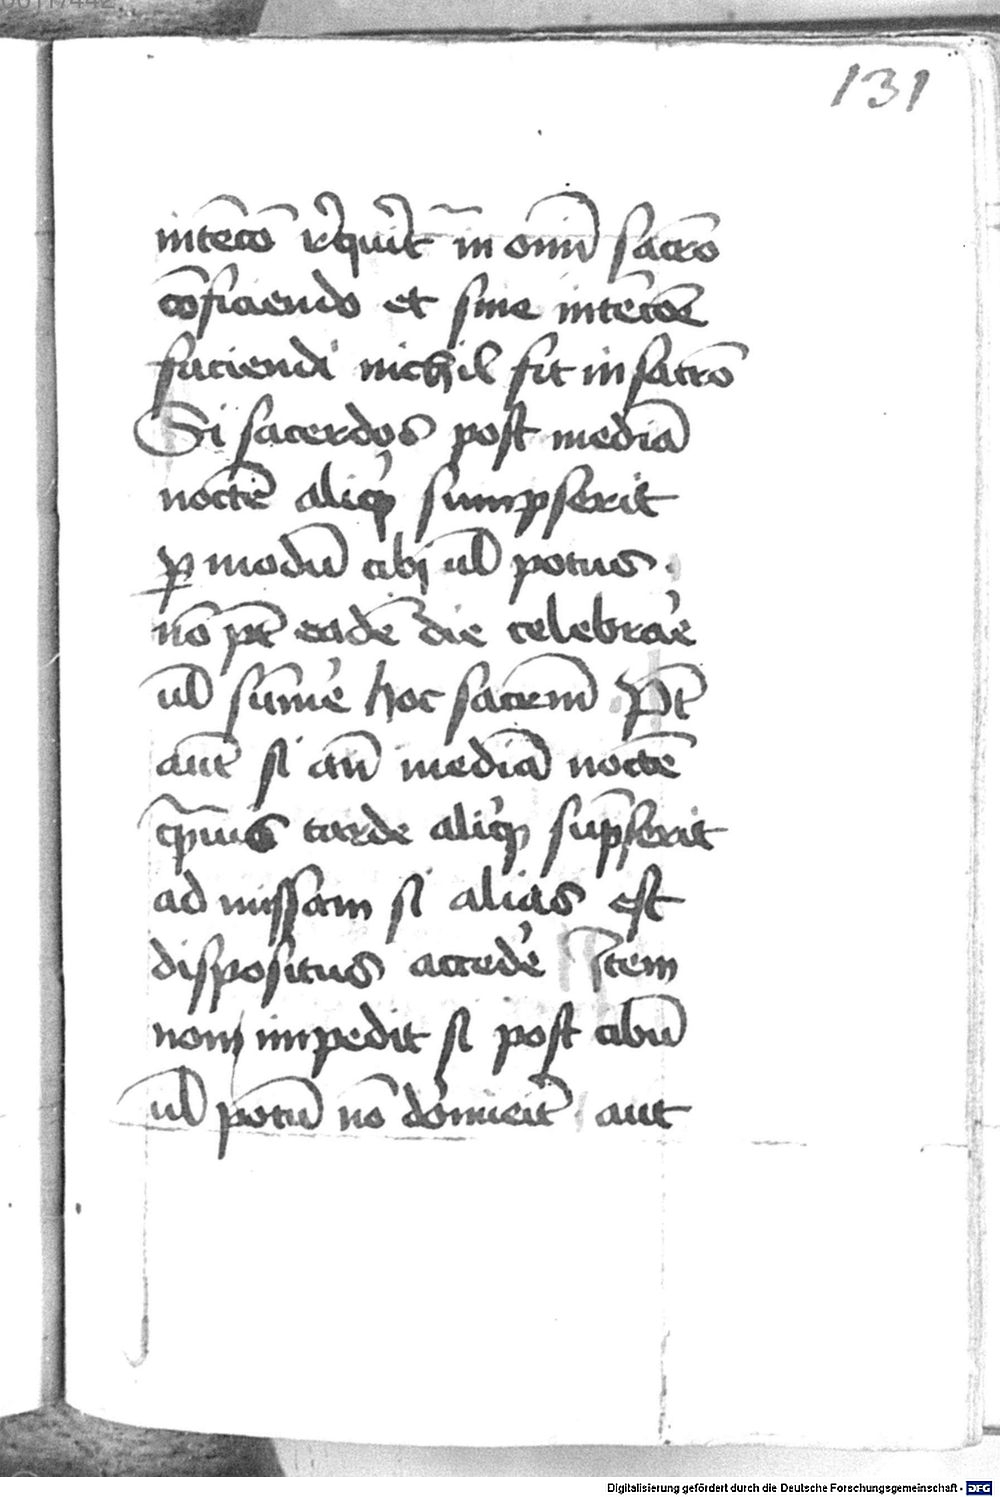 131
intēcō req̄rit̄ in om̄i sacrō
cōficiendo et sine intēcōe
faciendi nichil fit in sacrō
Si sacerdos post mediā
noctē aliq̄ sumpserit
ꝑ modū cibi ul̄ potus
nō pt̄ eadē die celebrar̄e
ul̄ sūmē hoc sacrem̄ Pt̄
aut̄ si an̄ mediā noctē
q̄mus tarde aliq̄ sūpserit
ad missam si alias est
dispositus accedē Item
non impedit si post cibū
ul̄ potū nō dormierit̄ aut
Digitalisierung gefördert durch die Deutsche Forschungsgemeinschaft - DFG